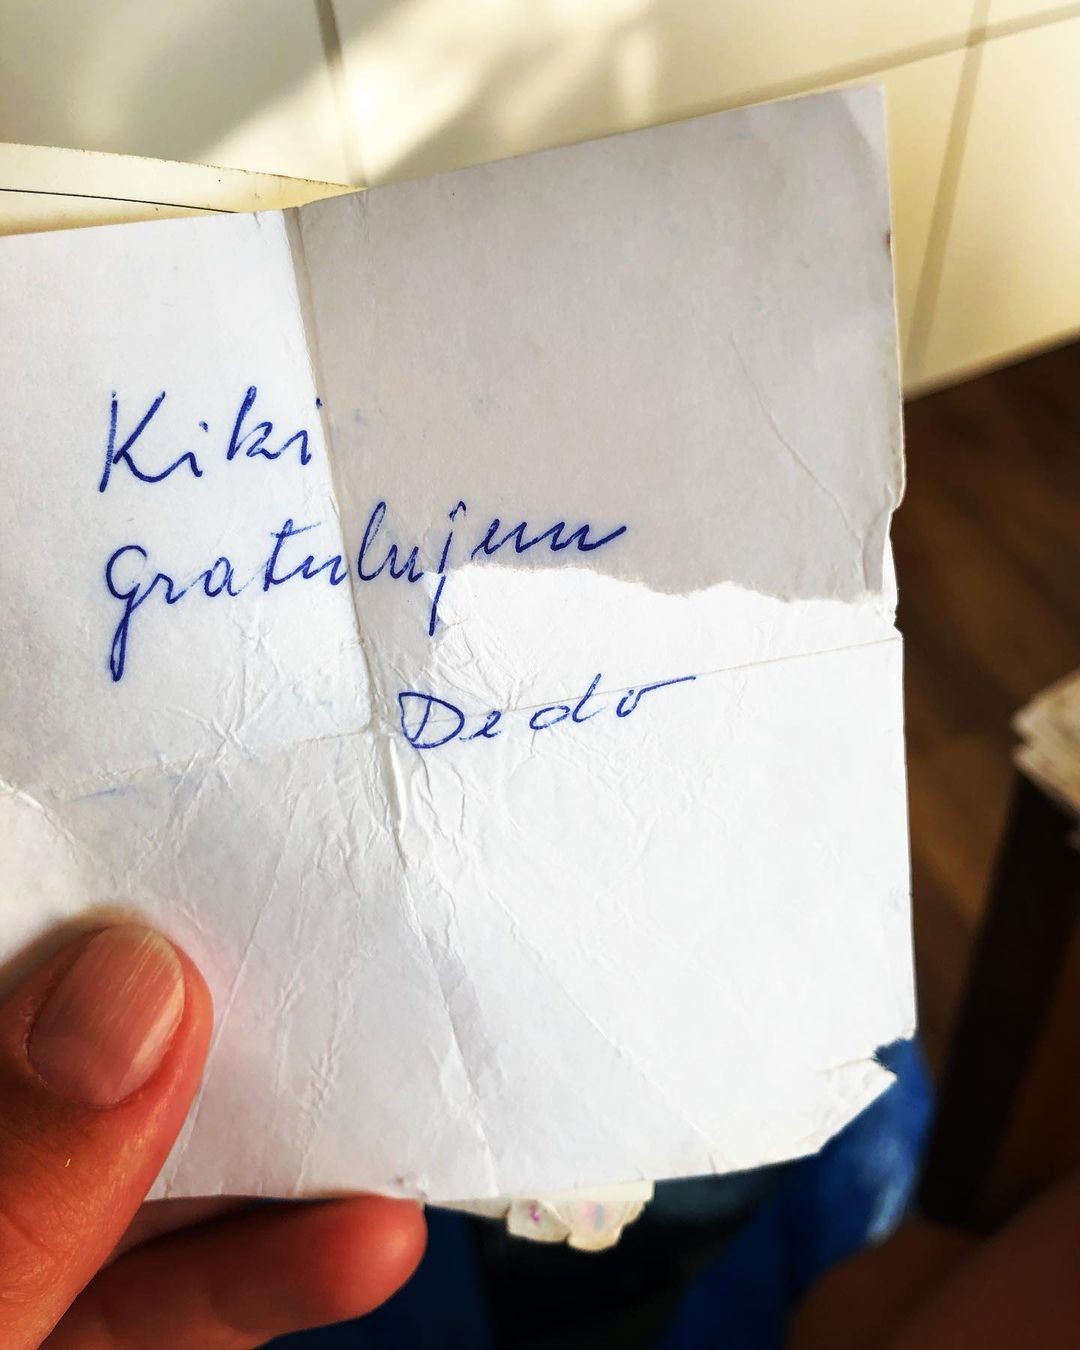 Kiki
gratulujem
Dedo